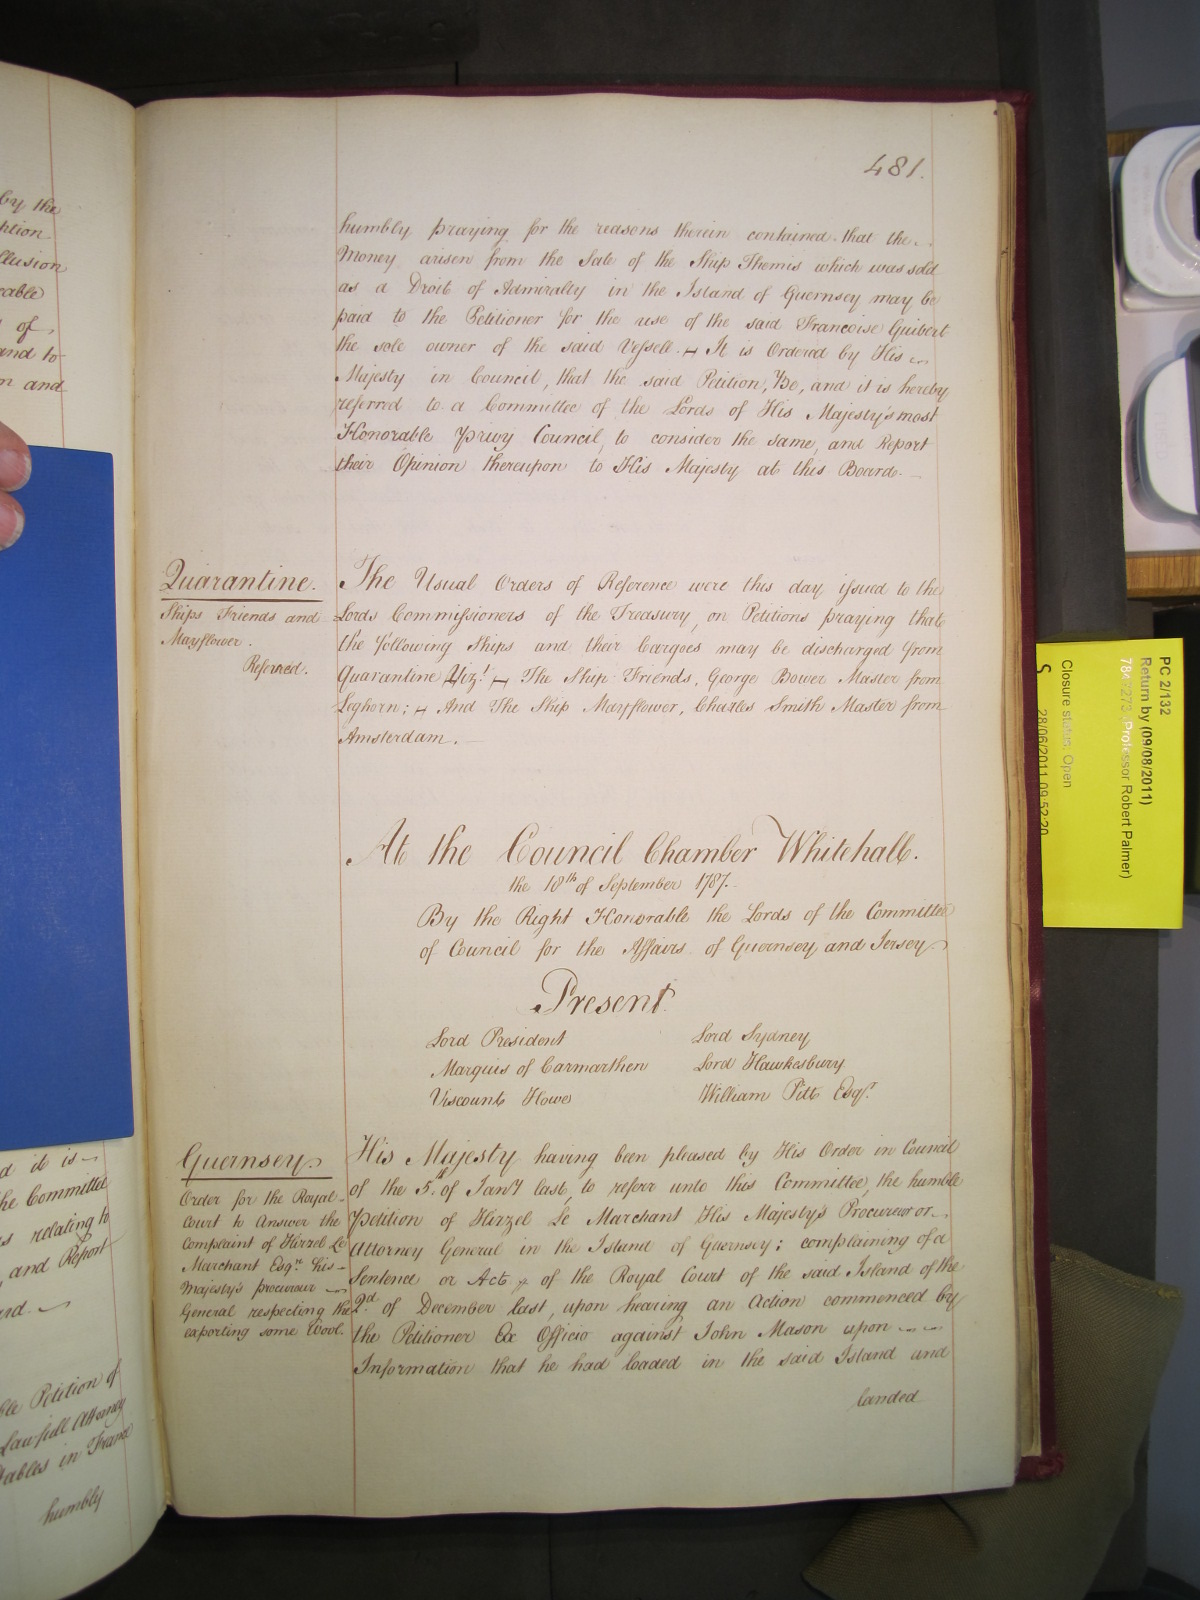 by the
of
and to
and
481.
humbly praying for the reasons therein contained that the
Money arisen from the Sale of the Ship Themis which was sold
as a Droit of Admiralty in the Island of Guernsey may be
paid to the Petitioner for the use of the said Francoise Guibert
the sole owner of the said Vessell. It is Ordered by His
Majesty in Council, that the said Petition, Be, and it is hereby
referred to a Committee of the Lords of His Majesty's most
Honorable Privy Council, to consider the same, and Report
their Opinion thereupon to His Majesty at this Board.
Quarantine.
Ships Friends and
Mayflower.
Referred.
The Usual Orders of Reference were this day issued to the
Lords Commissioners of the Treasury, on Petitions praying that
the following Ships and their Cargoes may be discharged from
Quarantine Vizt. The Ship Friends, George Bower Master from
Leghorn; And The Ship Mayflower, Charles Smith Master from
Amsterdam.
At the Council Chamber Whitehall.
the 18th of September 1787.
By the Right Honorable the Lords of the Committee
of Council for the Affairs of Guernsey and Jersey
Present
Lord President Lord Sydney
Marquis of Carmarthen Lord Hawkesbury
Viscount Howe William Pitt Esqr.
Guernsey
Order for the Royal
Court to Answer the
Complaint of Hirzel Le
Marchant Esqr. his
Majesty's procureur
General respecting the
exporting some Wool.
His Majesty having been pleased by His Order in Council
of the 5th of Jany last, to referr unto this Committee, the humble
Petition of Hirzel Le Marchant His Majesty's Procureur or
Attorney General in the Island of Guernsey; complaining of a
Sentence or Act of the Royal Court of the said Island of the
2d. of December last, upon hearing an Action commenced by
the Petitioner Ex Officio against John Mason upon
Information that he had loaded in the said Island and
landed
it is
the Committee
relating to
, and Report
Petition of
Lawfull Attorney
in France
humbly
PC 2/132
Return by (09/08/2011)
Professor Robert Palmer)
Closure status: Open
28/06/2011 09:52:20
S